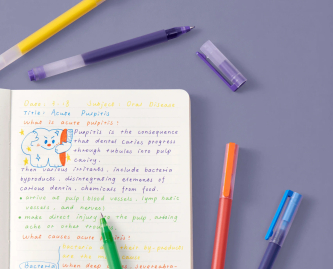 Subject: Oral Disease
Title: Acute Pulpitis
What is acute pulpitis?
Pulpitis is the consequence
that dental caries progress
through tubules into pulp
cavity.
Then various irritants, include bacteria
byproducts, disintegrating elements of
carious dentin, chemicals from food.
• arrive at pulp (blood vessels, lymphatic
vessels, and nerves)
• make direct injury to the pulp, adding
ache or other
What causes acute pulpitis?
bacteria
Bacteria when deep caries